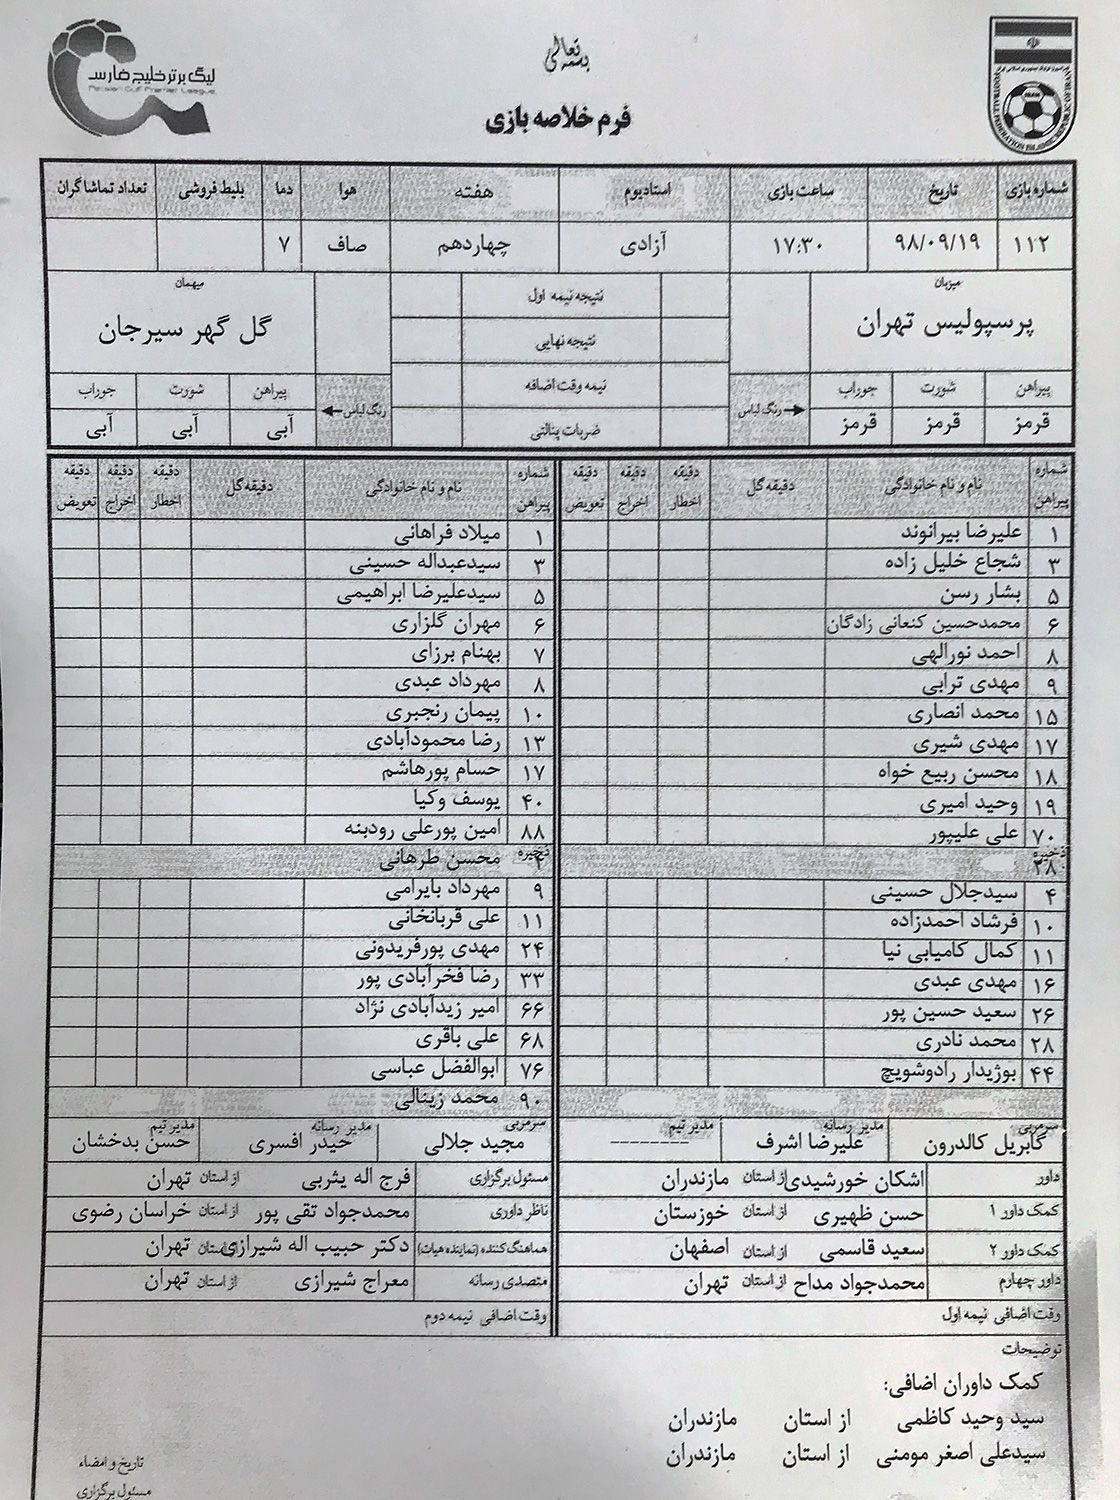 لیگ برتر خلیج فارس
Persian Gulf Premier League
بسمه تعالی
FOOTBALL FEDERATION ISLAMIC REPUBLIC OF IRAN
فرم خلاصه بازی
شماره بازی تاریخ ساعت بازی استادیوم هفته هوا دما بلیط فروشی تعداد تماشاگران
۱۱۲ ۹۸/۰۹/۱۹ ۱۷:۳۰ آزادی چهاردهم صاف ۷
میزبان نتیجه نیمه اول میهمان
پرسپولیس تهران نتیجه نهایی گل گهر سیرجان
پیراهن شورت جوراب رنگ لباس نیمه وقت اضافه پیراهن شورت جوراب
قرمز قرمز قرمز ضربات پنالتی رنگ لباس آبی آبی آبی
شماره پیراهن نام و نام خانوادگی دقیقه گل دقیقه اخطار دقیقه اخراج دقیقه تعویض شماره پیراهن نام و نام خانوادگی دقیقه گل دقیقه اخطار دقیقه اخراج دقیقه تعویض
۱ علیرضا بیرانوند ۱ میلاد فراهانی
۳ شجاع خلیل زاده ۳ سیدعبداله حسینی
۵ بشار رسن ۵ سیدعلیرضا ابراهیمی
۶ محمدحسین کنعانی زادگان ۶ مهران گلزاری
۸ احمد نورالهی ۷ بهنام برزای
۹ مهدی ترابی ۸ مهرداد عبدی
۱۵ محمد انصاری ۱۰ پیمان رنجبری
۱۷ مهدی شیری ۱۳ رضا محمودآبادی
۱۸ محسن ربیع خواه ۱۷ حسام پورهاشم
۱۹ وحید امیری ۴۰ یوسف وکیا
۷۰ علی علیپور ۸۸ امین پورعلی رودبنه
ذخیره ذخیره محسن طرهانی
۴ سیدجلال حسینی ۹ مهرداد بایرامی
۱۰ فرشاد احمدزاده ۱۱ علی قربانخانی
۱۱ کمال کامیابی نیا ۲۴ مهدی پورفریدونی
۱۶ مهدی عبدی ۳۳ رضا فخرآبادی پور
۲۶ سعید حسین پور ۶۶ امیر زیدآبادی نژاد
۲۸ محمد نادری ۶۸ علی باقری
۴۴ بوژیدار رادوشویچ ۷۶ ابوالفضل عباسی
۹۰ محمد زینالی
سرمربی گابریل کالدرون مدیر رسانه علیرضا اشرف مدیر تیم ------- سرمربی مجید جلالی مدیر رسانه حیدر افسری مدیر تیم حسن بدخشان
داور اشکان خورشیدی از استان مازندران مسئول برگزاری فرج اله یثربی از استان تهران
کمک داور ۱ حسن ظهیری از استان خوزستان ناظر داوری محمدجواد تقی پور از استان خراسان رضوی
کمک داور ۲ سعید قاسمی از استان اصفهان هماهنگ کننده (نماینده هیات) دکتر حبیب اله شیرازی از استان تهران
داور چهارم محمدجواد مداح از استان تهران متصدی رسانه معراج شیرازی از استان تهران
وقت اضافی نیمه اول وقت اضافی نیمه دوم
توضیحات
کمک داوران اضافی:
سید وحید کاظمی از استان مازندران
سیدعلی اصغر مومنی از استان مازندران
تاریخ و امضاء
مسئول برگزاری